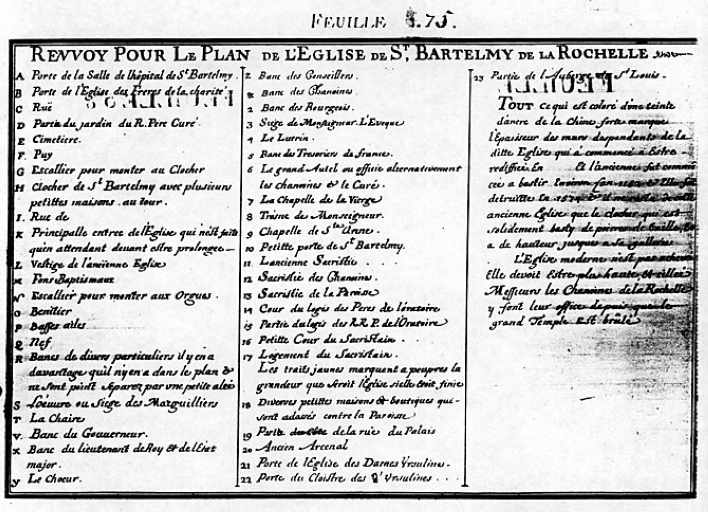 FEUILLE 75.
REVVOY POUR LE PLAN DE L'EGLISE DE ST. BARTELMY DE LA ROCHELLE
A Porte de la Salle de lhôpital de St Bartelmy.
B Porte de l'Eglise des Freres de la charité
C Ruë
D Partie du jardin du R. Pere Curé.
E Cimetiere.
F. Puy
G Escallier pour monter au Clocher
H Clocher de St Bartelmy avec plusieurs
petittes maisons. au tour.
I. Rue de
K Principalle entree de l'Eglise qui n'est faite
qu'en attendant deuant estre prolongee
L Vestige de l'anciènne Eglise
M Fons Baptismaux
N Escallier pour monter aux Orgues.
O Benitier
P Basses ailes
Q Nef
R Bancs de divers particuliers il y en a
davantage qu'il n'y en a dans le plan &
ne sont point separez par une petite alée
S Loeuvre ou Siege des Marguilliers
T La Chaire
V. Banc du Gouverneur.
X Banc du lieutenant de Roy et de l'Etat
major.
y Le Choeur.
Z Banc des Conseillers.
& Banc des Chanoines
2 Banc des Bourgeois.
3 Siege de Monseigneur L'Eveque
4 Le Lutrin.
5 Banc des Tresoriers de france.
6 Le grand Autel ou officie alternativement
les chanoines & le Curé.
7 La Chapelle de la Vierge
8 Trosne de Monseigneur.
9 Chapelle de Ste Anne.
10 Petitte porte de St Bartelmy.
11 Lancienne Sacristie . . .
12 Sacristie des Chanoines.
13 Sacristie de la Paroisse
14 Cour du logis des Peres de l'oratoire
15 Partie du logis des R.R. P. de l'Oratoire
16 Petitte Cour du Sacristain. .
17 Logement du Sacristain.
Les traits jaunes marquent a peu pres la
grandeur que seroit l'Eglise sielle étoit finie
18 Diverses petittes maisons & boutiques qui
sont adossés contre la Paroisse
19 de la ruë du Palais
20 Ancien Arcenal
21 Porte de l'Eglise des Dames Vrsulines.
22 Porte du Cloistre des Vrsulines . . .
23 Partie de l'Auberge St Louis.
TOUT ce qui est coloré d'une teinte
d'ancre de la Chine forte marque
l'Epaisseur des murs despendants de la
ditte Eglise qui à commencé à Estre
rediffiée En Et l'ancienne fut commen
cée a bastir
detruitte
ancienne Eglise que le clocher qui est
solidement basty de pierres de taille,
a de hauteur jusques a
L'Eglise moderne n'est pas achevée
elle devoit Estre plus haute,
Messieurs les Chanoines de la Rochelle
y font leur office depuis que le
grand Temple est brûlé